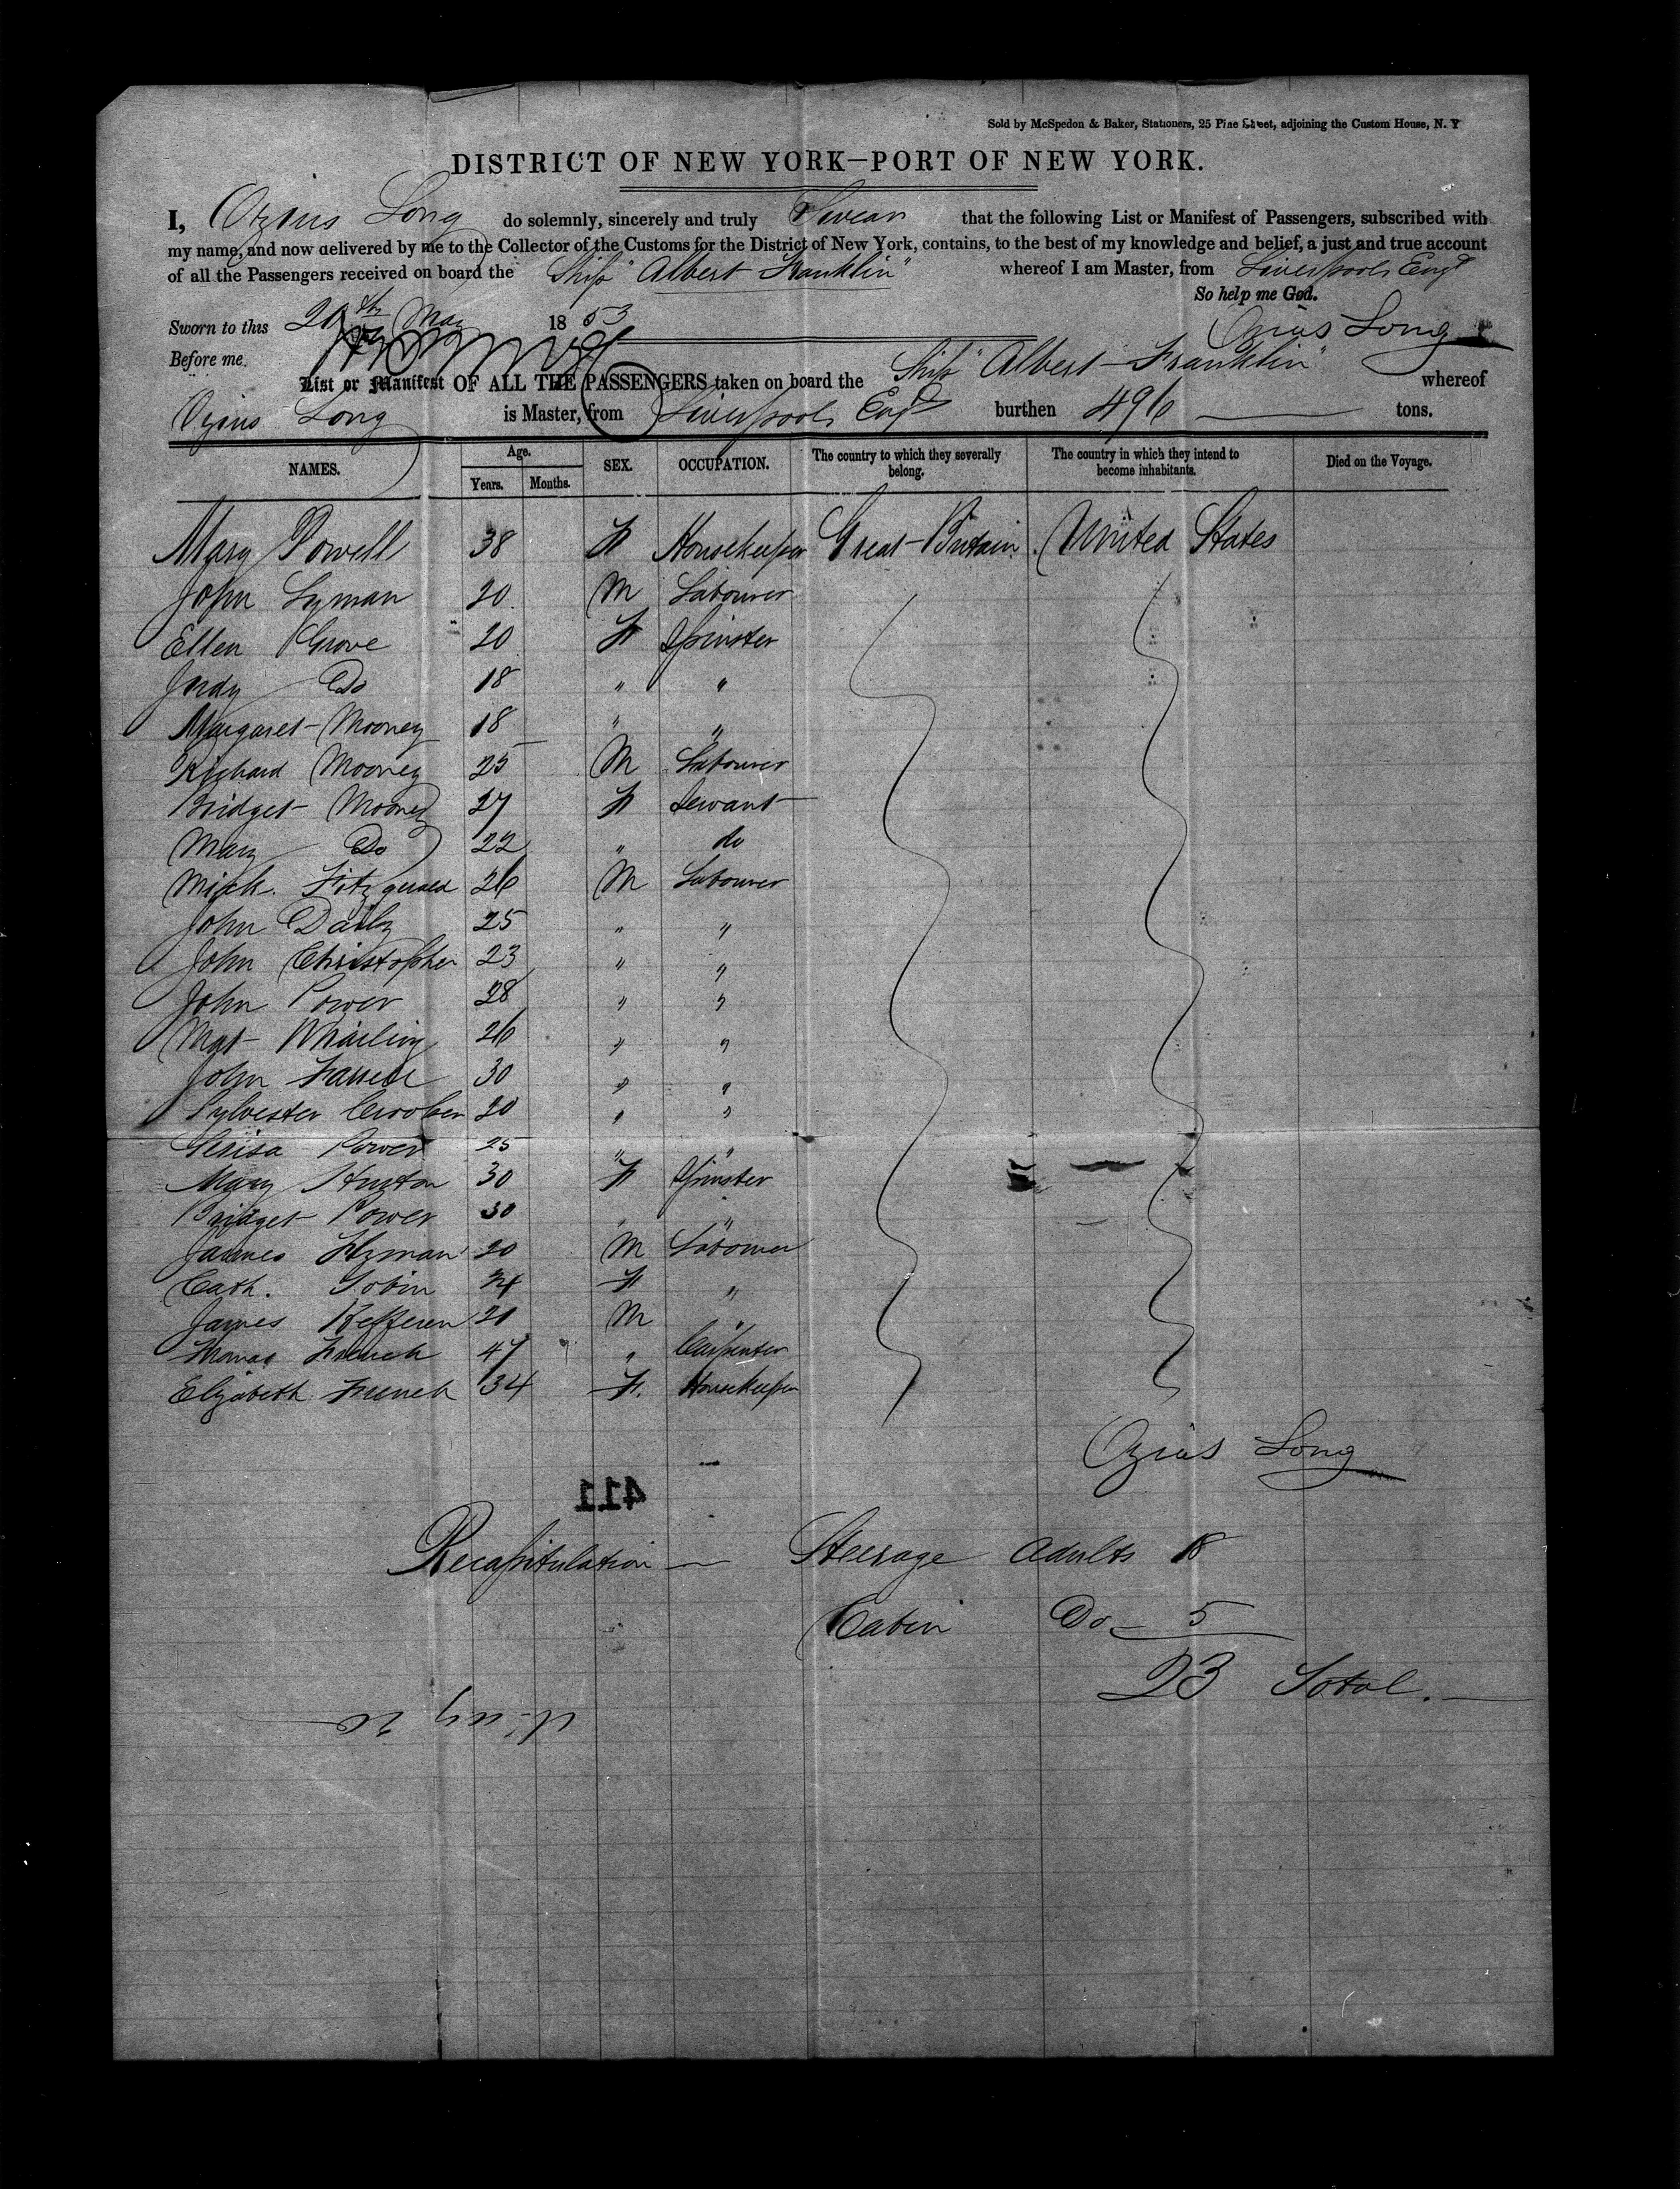 Sold by McSpedon & Baker, Stationers, 25 Pine Street, adjoining the Custom House, N. Y
DISTRICT OF NEW YORK—PORT OF NEW YORK.
I, Ozias Long do solemnly, sincerely and truly Swear that the following List or Manifest of Passengers, subscribed with
my name, and now delivered by me to the Collector of the Customs for the District of New York, contains, to the best of my knowledge and belief, a just and true account
of all the Passengers received on board the Ship "Albert Franklin" whereof I am Master, from Liverpool, Engd
So help me God.
Sworn to this 20th May 1853 Ozias Long
Before me.
List or Manifest OF ALL THE PASSENGERS taken on board the Ship "Albert Franklin" whereof
Ozias Long is Master, from Liverpool, Engd burthen 496 tons.
NAMES. Age. Years. Months. SEX. OCCUPATION. The country to which they severally belong. The country in which they intend to become inhabitants. Died on the Voyage.
Mary Powell 38 F Housekeeper Great Britain United States
John Lyman 20 M Labourer
Ellen Grove 20 F Spinster
Judy Do 18 " "
Margaret Mooney 18 " "
Richard Mooney 25 M Labourer
Bridget Mooney 27 F Servant
Mary Do 22 " do
Mick. Fitzgerald 26 M Labourer
John Daily 25 " "
John Christopher 23 " "
John Power 28 " "
Mat 26 " "
John 30 " "
Sylvester 20 " "
Power 25 " "
Mary 30 F Spinster
Bridget Power 30 " "
James 20 M Labourer
Cath. Tobin 24 F "
James 21 M "
Thomas French 47 " Carpenter
Elizabeth French 34 F. Housekeeper
Ozias Long
411
Recapitulation — Steerage Adults 18
Cabin Do — 5
23 Total.